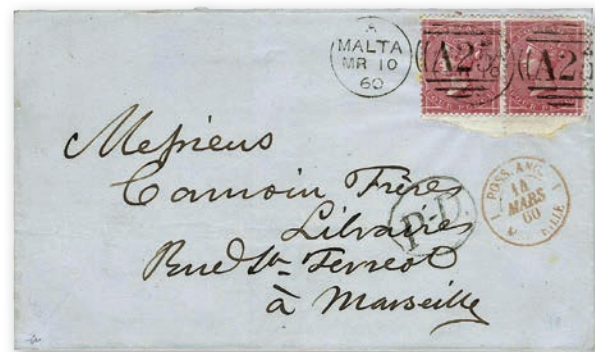 A
MALTA
MR 10
60
A25
A25
Messieurs
Camoin Frères
Libraires
P.D.
Rue St. Ferreol
à Marseille
POSS. ANG.
14
MARS
60